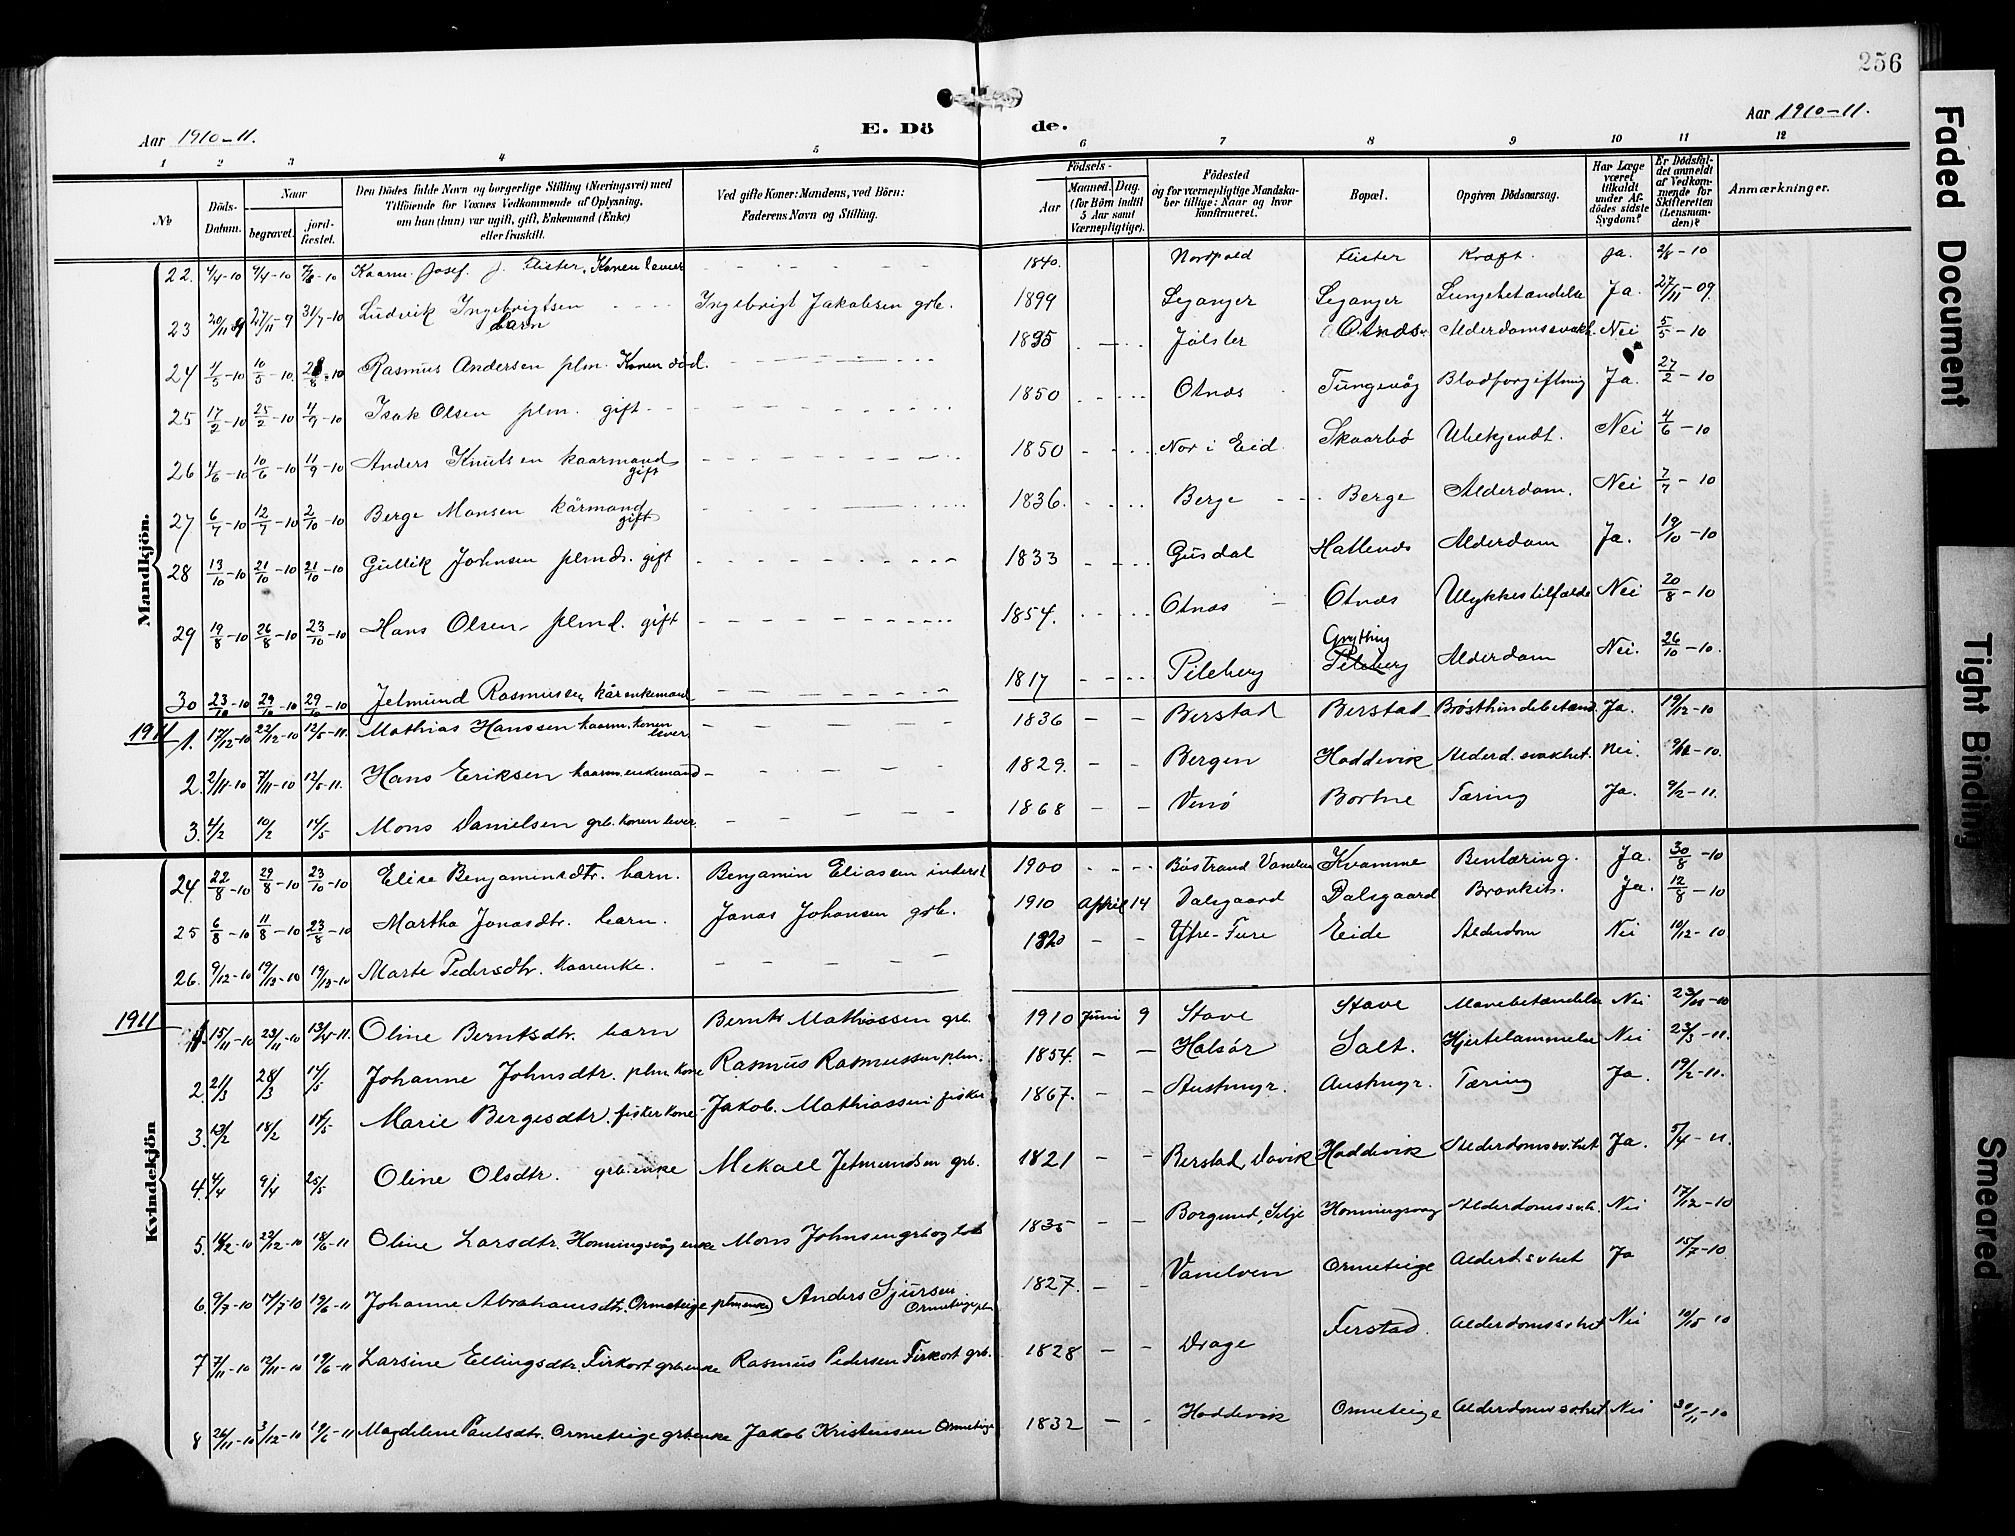 256
Aar 1910-11. E. Dö de. Aar 1910-11.
1 2 3 4 5 6 7 8 9 10 11 12
No Döds-Datum. Naar begravet. jordfæstet. Den Dödes fulde Navn og borgerlige Stilling (Næringsvei) med Tilföiende for Voxnes Vedkommende af Oplysning, om han (hun) var ugift, gift, Enkemand (Enke) eller fraskilt. Ved gifte Koner: Mandens, ved Börn: Faderens Navn og Stilling. Födsels- Aar Maaned. Dag. (for Börn indtil 5 Aar samt Værnepligtige). Födested og for værnepligtige Mandskaber tillige: Naar og hvor konfirmeret. Bopæl. Opgiven Dödsaarsag. Har Læge været tilkaldt under Afdödes sidste Sygdom? Er Dödsfaldet anmeldt af Vedkommende for Skifteretten (Lensmanden)? Anmærkninger.
Mandkjön.
22. 4/4-10 9/4-10 7/8-10 Kaarm. Josef J. Leister, Konen lever 1840. Nordpold Leister Kræft. Ja. 2/8-10
23 20/11 09 27/11-9 31/7-10 Ludvik Ingebrigtsen barn Ingebrigt Jakobsen grb. 1899 Leganger Leganger Lungebetændelse Ja 27/11-09.
24 4/5-10 10/5-10 21/8-10 Rasmus Andersen plm. Konen död. 1835 Jölster Otnes Alderdomssvakh. Nei 5/5-10
25 17/2-10 25/2-10 4/9-10 Isak Olsen plm. gift 1850 Otnes Tungevåg Blodforgiftning Ja. 27/2-10
26 4/6-10 10/6-10 11/9-10 Anders Knutsen kaarmand gift 1850 Nor i Eid Skaarbø Ubekjendt. Nei 4/6-10
27 6/7-10 12/7-10 2/10-10 Berge Monsen kårmand gift 1836. Berge Berge Alderdom. Nei 7/7-10
28 13/10-10 21/10-10 21/10-10 Gullik Johnsen plmd. gift 1833 Gusdal Hallends Alderdom Ja. 19/10-10
29 19/8-10 26/8-10 23/10-10 Hans Olsen plmd. gift 1854. Otnes Otnes Ulykkestilfælde Nei 20/8-10
30 23/10-10 29/10-10 29/10-10 Jetmund Rasmussen kårenkemand 1817 Pileberg Grytting Pileberg Alderdom Nei. 26/10-10.
1911
1. 17/12-10 22/12-10 12/5-11. Mathias Hanssen kaarm. konen lever. 1836 Berstad Berstad Brösthindebetænd. Ja. 19/12-10
2. 2/11-10 7/11-10 12/5-11. Hans Eriksen kaarm. enkemand 1829. Bergen Hoddevik Alderd. svakhet. Nei. 9/12-10.
3. 4/2 10/2 14/5 Mons Danielsen grb. konen lever. 1868 Venö Bortne Tæring Ja. 9/2-11.
Kvindekjön
24. 22/8-10 29/8-10 23/10-10 Elise Benjaminsdtr. barn. Benjamin Eliassen inderst 1900 Böstrand Vanelven Kvamme Bentæring. Ja 30/8-10
25 6/8-10 11/8-10 23/8-10 Martha Jonasdtr. barn. Jonas Johansen grb. 1910 April 14 Dalsgaard Dalsgaard Bronkit. Ja. 12/8-10
26. 9/12-10 19/12-10 19/12-10 Marte Pedersdtr. Kaarenke. 1820 Ytre-Fure Eide Alderdom Nei 10/12-10
1911
1. 15/11-10 23/11-10 13/4-11. Oline Berntsdtr. barn Bernt Mathiassen grb. 1910 Juni 9 Stave Stave Mavebetændelse Nei 23/11-10
2. 21/3 28/3 14/5 Johanne Johnsdtr. plm. kone Rasmus Rasmussen plm. 1854. Halsör Salt. Hjertelammelse Nei 23/3-11.
3. 13/2 18/2 14/5 Marie Bergesdtr. fisker kone Jakob Mathiassen fisker 1867. Austmyr. Austmyr. Tæring Ja. 19/2-11.
4. 4/4 9/4 25/5 Oline Olsdtr. grb. enke Mekael Jetmundsen grb. 1821 Berstad, Davik Hoddevik Alderdomssvhet Ja. 5/4-11.
5. 16/12-10 23/12-10 18/6-11 Oline Larsdtr. Honningsvåg enke Mons Johnsen grb og los 1835 Borgund, Selje Honningsvåg Alderdomssvh. Nei 17/12-10
6. 9/7-10 17/7-10 19/6-11 Johanne Abrahamsdtr. Ormeteige plm enke Anders Sjursen Ormeteige plm 1827. Vanelven Ormeteige Alderd. svhet Ja 15/7-10
7 7/11-10 12/11-10 19/6-11 Larsine Ellingsdtr. Firkort grb enke Rasmus Pedersen Firkort grb. 1828 Drage Ferstad. Alderdomssvhet Nei 10/10 10
8 26/11-10 3/12-10 19/6-11 Magdelene Paulsdtr. Ormeteige grb enke Jakob Kristensen Ormeteige 1832 Hoddevik Ormeteige Alderdomssvhet Nei 30/11-10
Faded Document
Tight Binding
Smeared